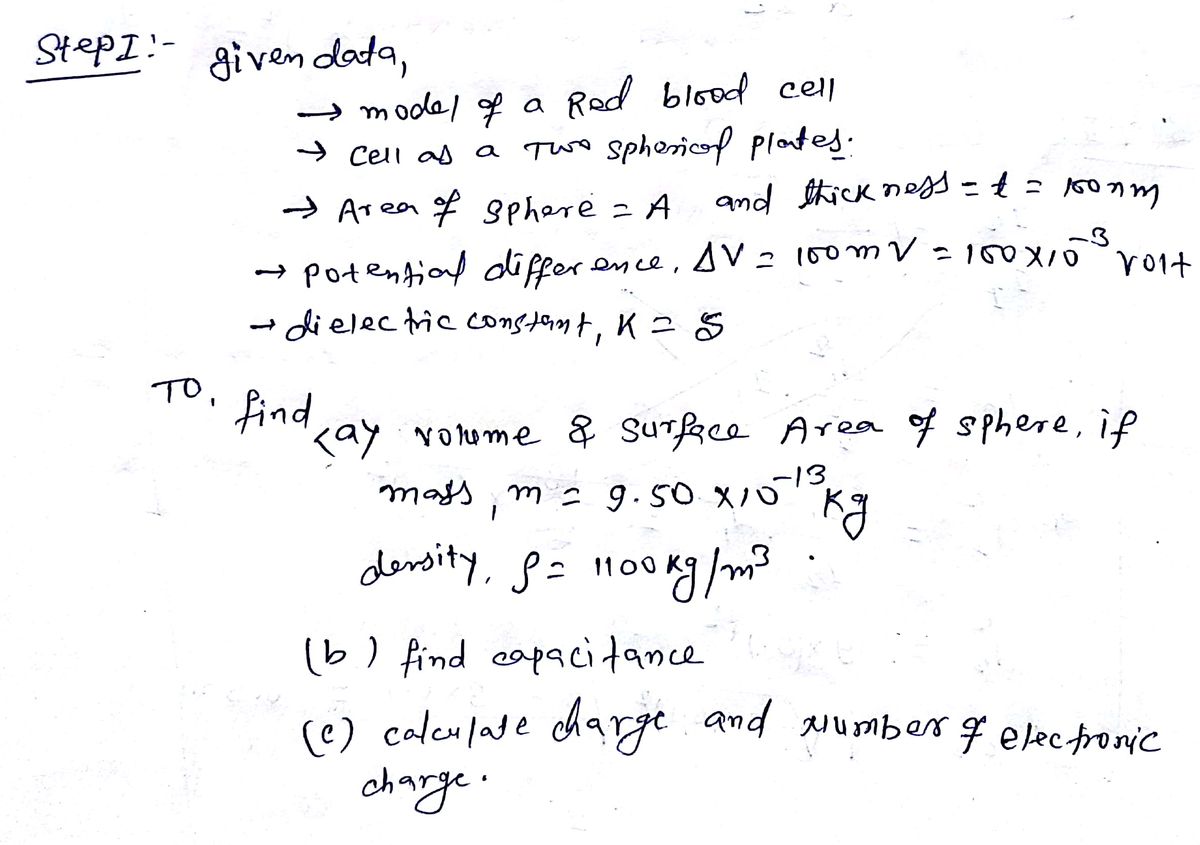 Step I :- given data,
→ model of a Red blood cell
→ cell as a Two spherical plates.
→ Area of sphere = A and thickness = t = 100 nm
→ potential difference, ΔV = 100 mV = 100 × 10⁻³ volt
→ dielectric constant, K = 5
TO, find
(a) volume & surface Area of sphere, if
mass, m = 9.50 × 10⁻¹³ kg
density, ρ = 1100 kg/m³ .
(b) find capacitance
(c) calculate charge and Number of electronic
charge.